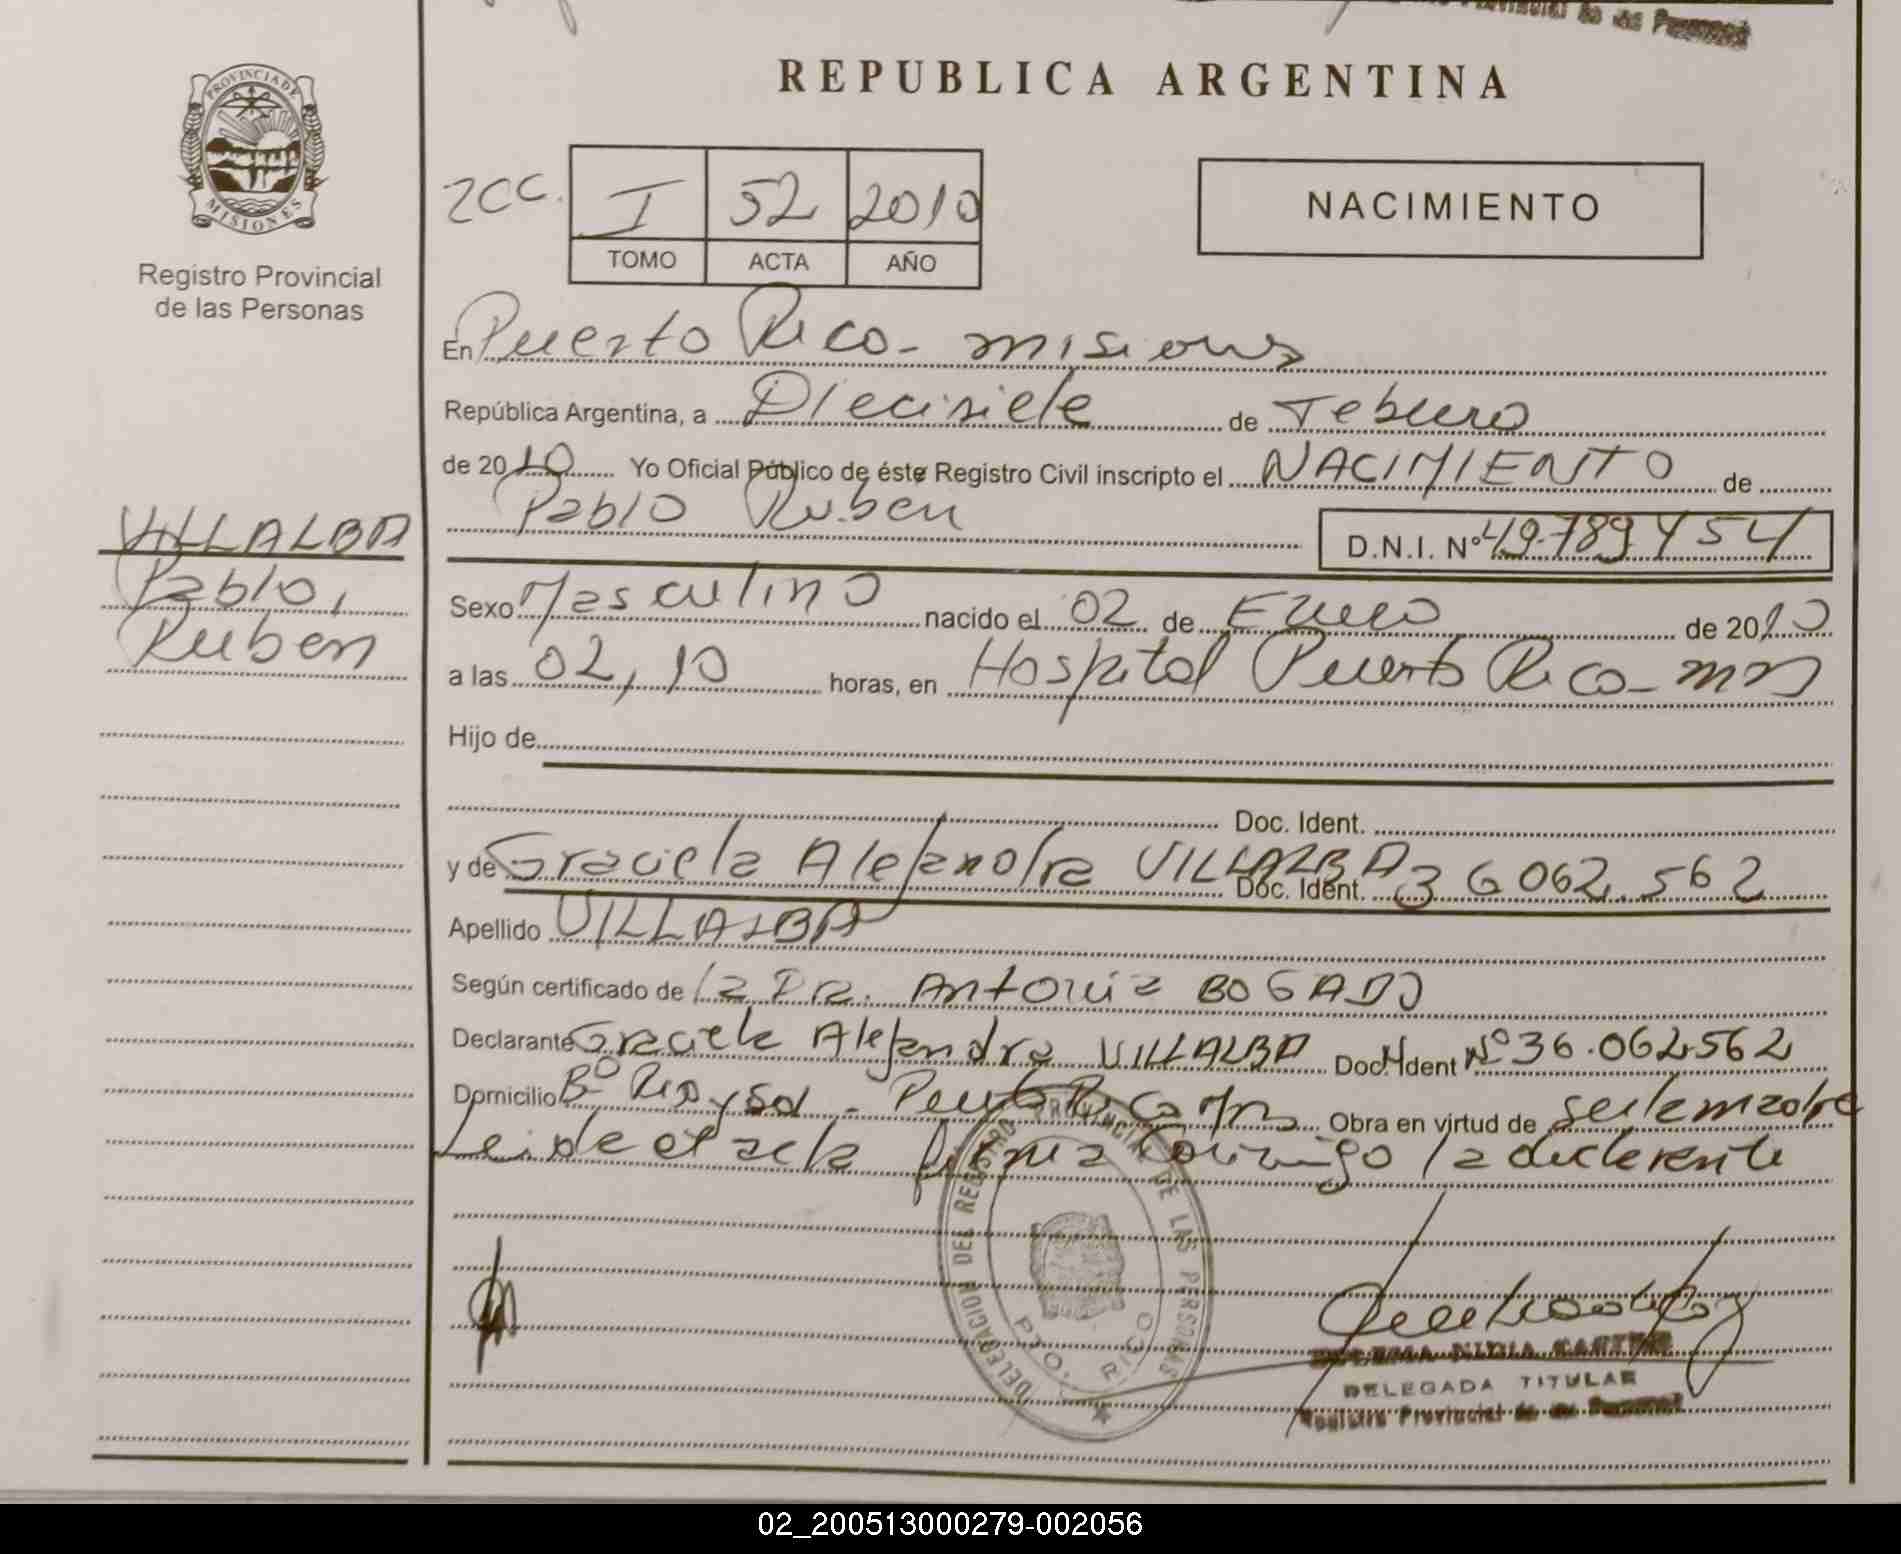 Provincial de las Personas
REPUBLICA ARGENTINA
PROVINCIA DE
MISIONES
Registro Provincial
de las Personas
I 52 2010
TOMO ACTA AÑO
NACIMIENTO
En Puerto Rico - misiones
República Argentina, a Diecisiete de Febrero
de 2010 Yo Oficial Público de éste Registro Civil inscripto el NACIMIENTO de
Pablo Ruben
D.N.I. Nº 49.789.454
VILLALBA
Pablo,
Ruben
Sexo Masculino nacido el 02 de Enero de 2010
a las 02,10 horas, en Hospital Puerto Rico - mns
Hijo de
Doc. Ident.
y de Graciela Alejandra VILLALBA Doc. Ident. 36062.562
Apellido VILLALBA
Según certificado de la Dra. Antonia BOGADO
Declarante Graciela Alejandra VILLALBA Doc. Ident Nº 36.062.562
Domicilio Bº - Puerto Rico Mns Obra en virtud de
Leida el acta firma conmigo la declarante
DELEGACION DEL REGISTRO PROVINCIAL DE LAS PERSONAS
PTO. RICO
DELEGADA TITULAR
Registro Provincial de las Personas
02_200513000279-002056